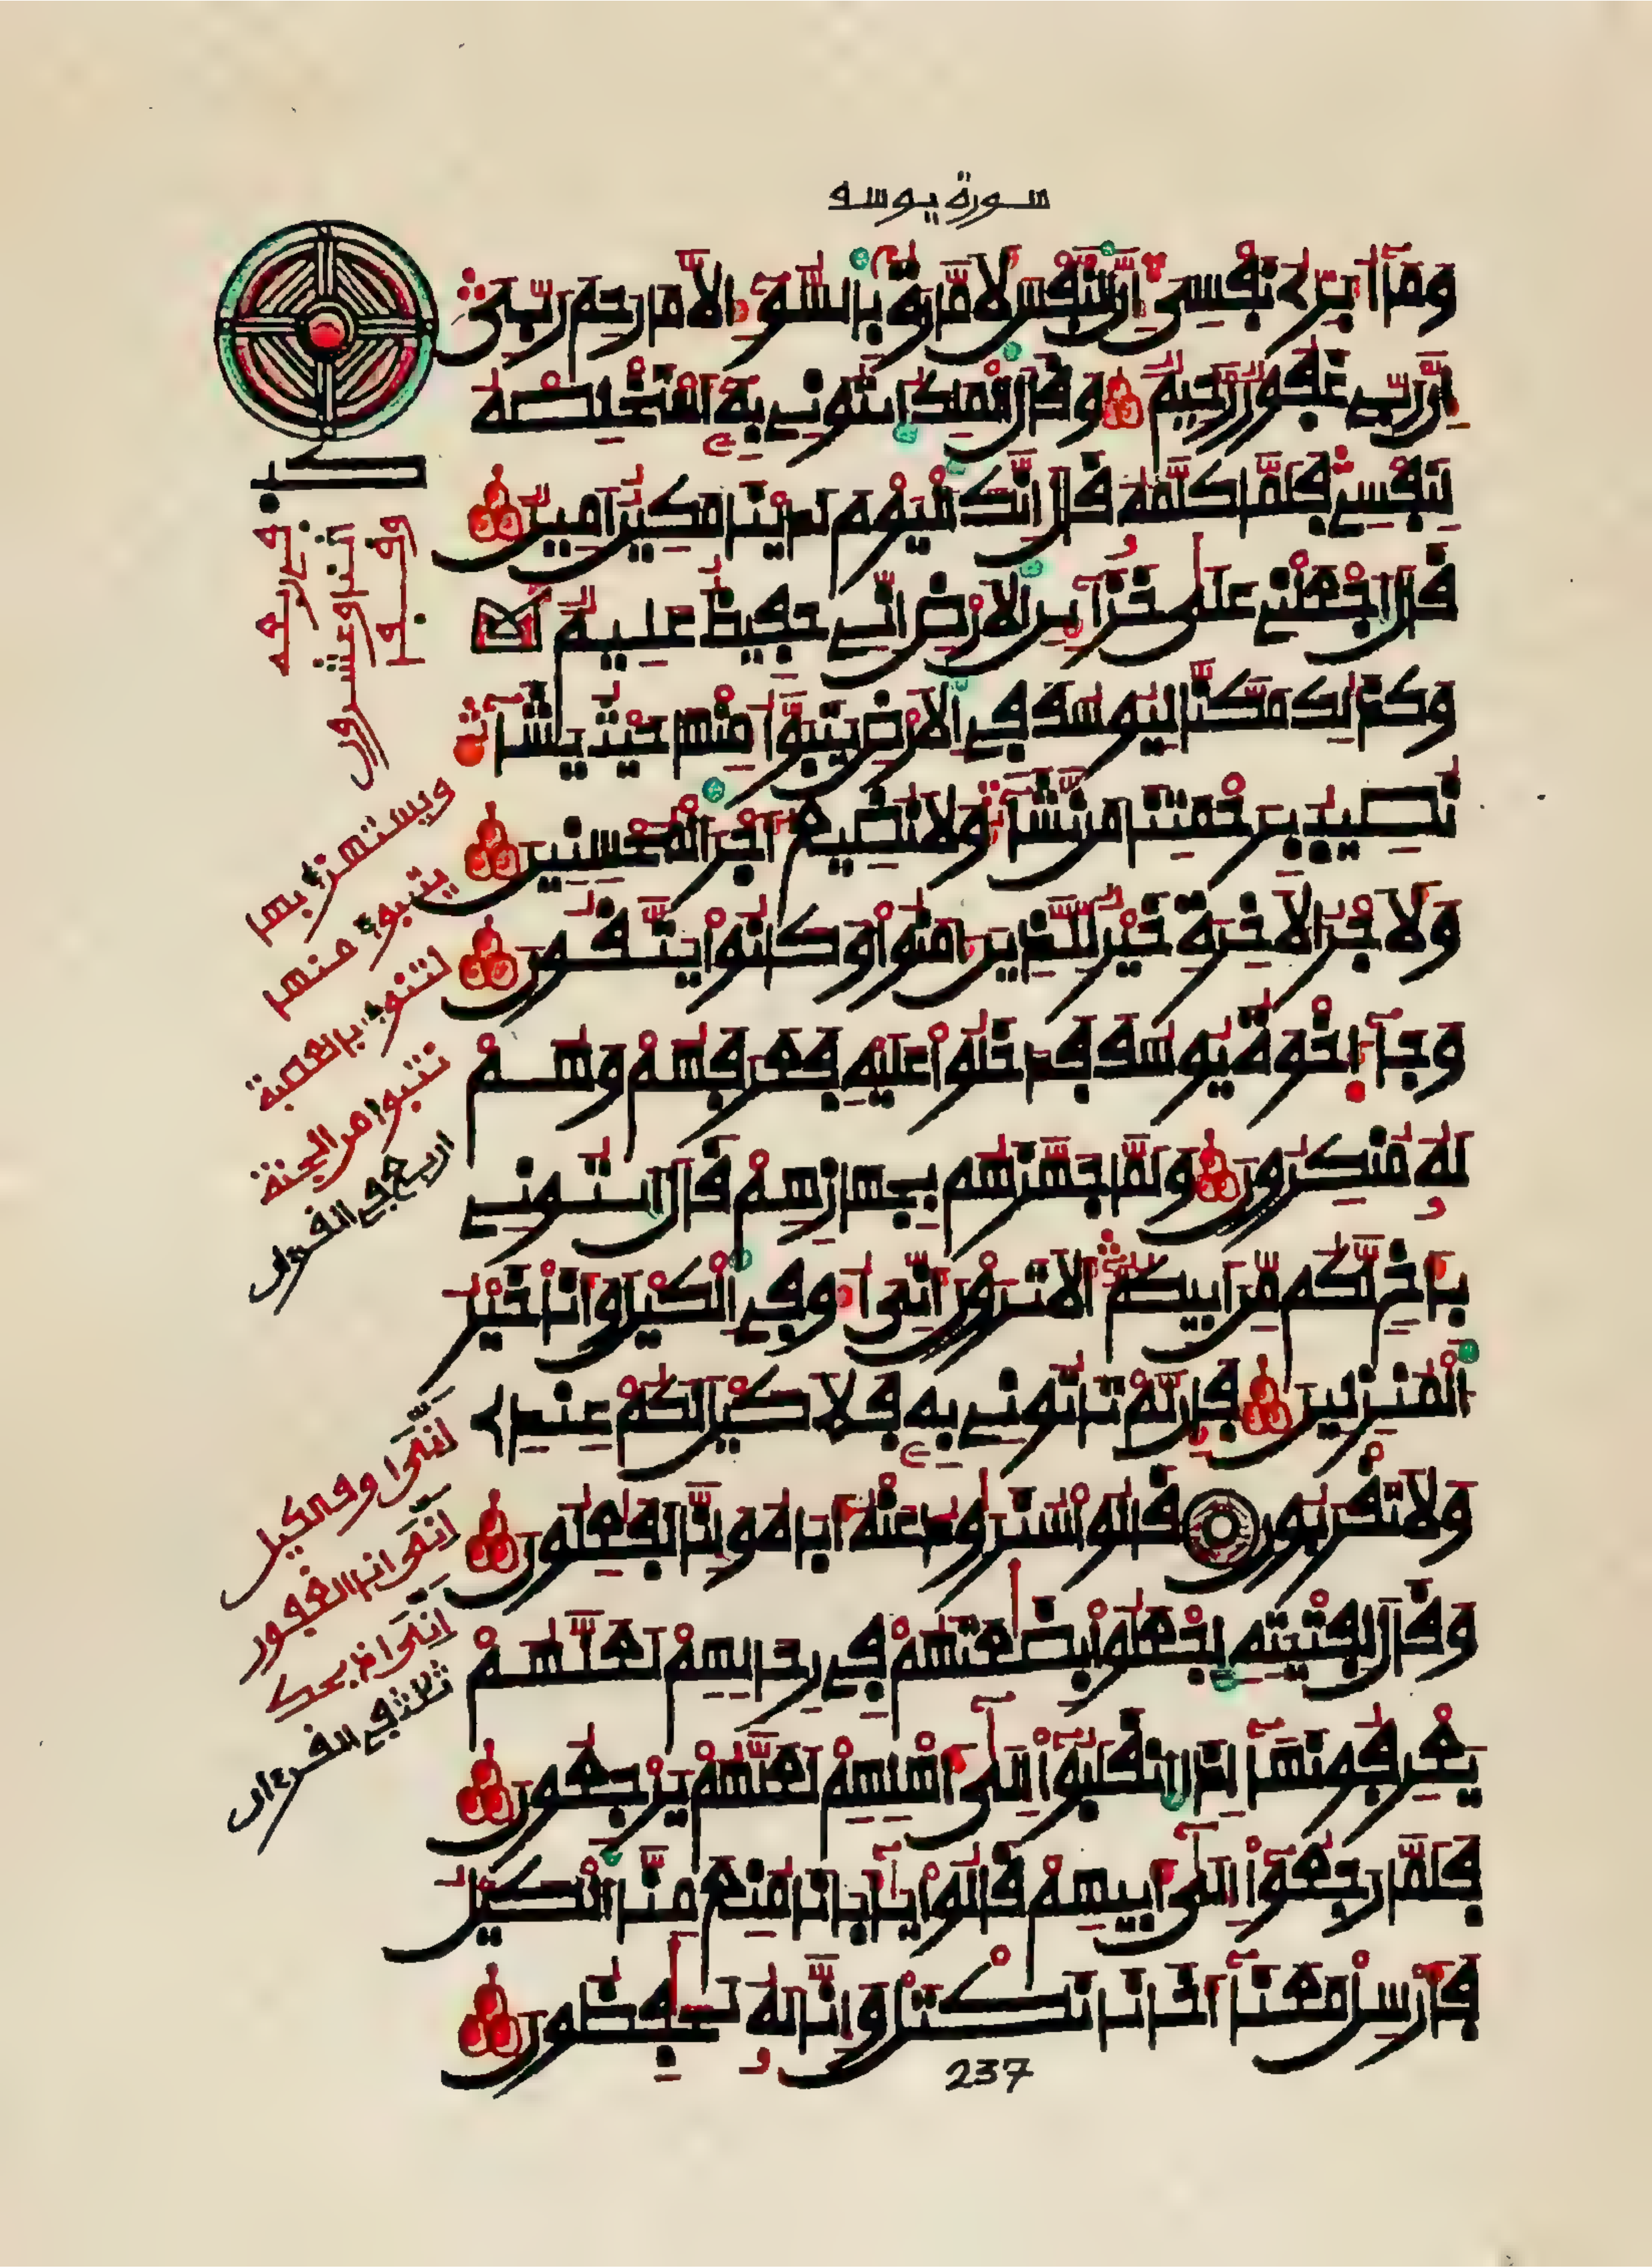 سورة يوسف
وَمَآ أُبَرِّئُ نَفْسِيَ إِنَّ ٱلنَّفْسَ لَأَمَّارَةٌۢ بِٱلسُّوٓءِ الَّا مَا رَحِمَ رَبِّيَ
إِنَّ رَبِّي غَفُورٌ رَّحِيمٌ وَقَالَ ٱلْمَلِكُ ٱيتُونِي بِهِۦٓ أَسْتَخْلِصْهُ
لِنَفْسِي فَلَمَّا كَلَّمَهُۥ قَالَ إِنَّكَ ٱلْيَوْمَ لَدَيْنَا مَكِينٌ أَمِينٌ
قَالَ ٱجْعَلْنِي عَلَىٰ خَزَآئِنِ ٱلْأَرْضِ إِنِّي حَفِيظٌ عَلِيمٌ
وَكَذَٰلِكَ مَكَّنَّا لِيُوسُفَ فِي ٱلْأَرْضِ يَتَبَوَّأُ مِنْهَا حَيْثُ يَشَآءُ
نُصِيبُ بِرَحْمَتِنَا مَن نَّشَآءُ وَلَا نُضِيعُ أَجْرَ ٱلْمُحْسِنِينَ
وَلَأَجْرُ ٱلْأَخِرَةِ خَيْرٌ لِّلَّذِينَ ءَامَنُوا۟ وَكَانُوا۟ يَتَّقُونَ
وَجَآءَ إِخْوَةُ يُوسُفَ فَدَخَلُوا۟ عَلَيْهِ فَعَرَفَهُمْ وَهُمْ
لَهُۥ مُنكِرُونَ وَلَمَّا جَهَّزَهُم بِجَهَازِهِمْ قَالَ ٱيتُونِي
بِأَخٍ لَّكُم مِّنَ ابِيكُمُۥٓ أَلَا تَرَوْنَ أَنِّيَ أُوفِي ٱلْكَيْلَ وَأَنَا خَيْرُ
ٱلْمُنزِلِينَ فَإِن لَّمْ تَاتُونِي بِهِۦ فَلَا كَيْلَ لَكُمْ عِندِي
وَلَا تَقْرَبُونِ قَالُوا۟ سَنُرَٰوِدُ عَنْهُ أَبَاهُ وَإِنَّا لَفَٰعِلُونَ
وَقَالَ لِفِتْيَتِهِ ٱجْعَلُوا۟ بِضَٰعَتَهُمْ فِي رِحَالِهِمْ لَعَلَّهُمْ
يَعْرِفُونَهَآ إِذَا ٱنقَلَبُوٓا۟ إِلَىٰٓ أَهْلِهِمْ لَعَلَّهُمْ يَرْجِعُونَ
فَلَمَّا رَجَعُوٓا۟ إِلَىٰٓ أَبِيهِمْ قَالُوا۟ يَٰٓأَبَانَا مُنِعَ مِنَّا ٱلْكَيْلُ
فَأَرْسِلْ مَعَنَآ أَخَانَا نَكْتَلْ وَإِنَّا لَهُۥ لَحَٰفِظُونَ
237
ويستهزأ بها
يتبوأ منها
لتنوأ بالعصبة
نتبوأ من الجنة
اربع في القرءان
إنّي أوف الكيل
أني أنا الغفور
إني أذبحك
ثلاث في القرءان